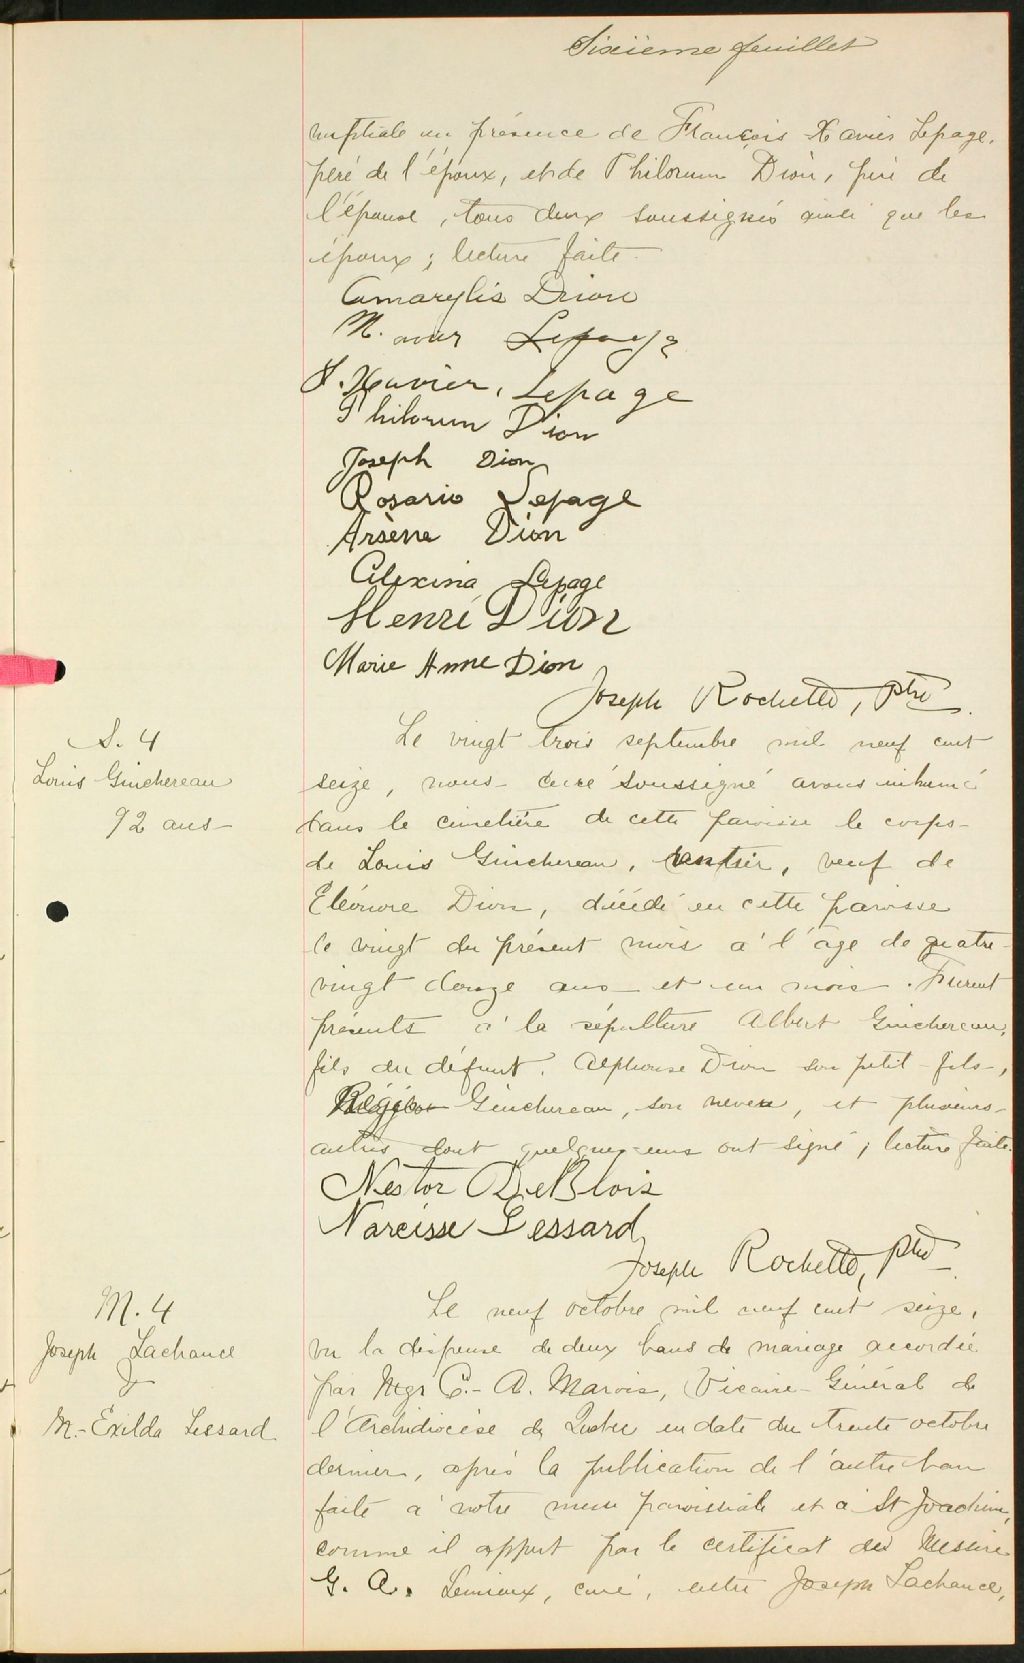 Sixième feuillet
nuptiale en présence de François Xavier Lepage,
père de l'époux, et de Philorum Dion, père de
l'épouse, tous deux soussignés ainsi que les
époux; lecture faite.
Amarylis Dion
M. avier Lepage
F. Xavier, Lepage
Philorum Dion
Joseph Dion
Rosario Lepage
Arsène Dion
Alexina Lepage
Henri Dion
Marie Anne Dion
Joseph Rochette, Ptre
S. 4
Louis Guichereau
92 ans
Le vingt trois septembre mil neuf cent
seize, nous curé soussigné avons inhumé
dans le cimetière de cette paroisse le corps
de Louis Guichereau, rentier, veuf de
Eléonore Dion, décédé en cette paroisse
le vingt du présent mois à l'âge de quatre
vingt douze ans et un mois. Furent
présents à la sépulture Albert Guichereau,
fils du défunt, Alphonse Dion son petit-fils,
Guichereau, son neveu, et plusieurs
autres dont quelques-uns ont signé; lecture faite.
Nestor DeBlois
Narcisse Lessard
Joseph Rochette, Ptre
M. 4
Joseph Lachance
&
M.-Exilda Lessard
Le neuf octobre mil neuf cent seize,
vu la dispense de deux bans de mariage accordée
par Mgr C.-A. Marois, Vicaire-Général de
l'Archidiocèse de Québec en date du trente octobre
dernier, après la publication de l'autre ban
faite à notre messe paroissiale et à St Joachim,
comme il appert par le certificat de Messire
G. A. Lemieux, curé, entre Joseph Lachance,